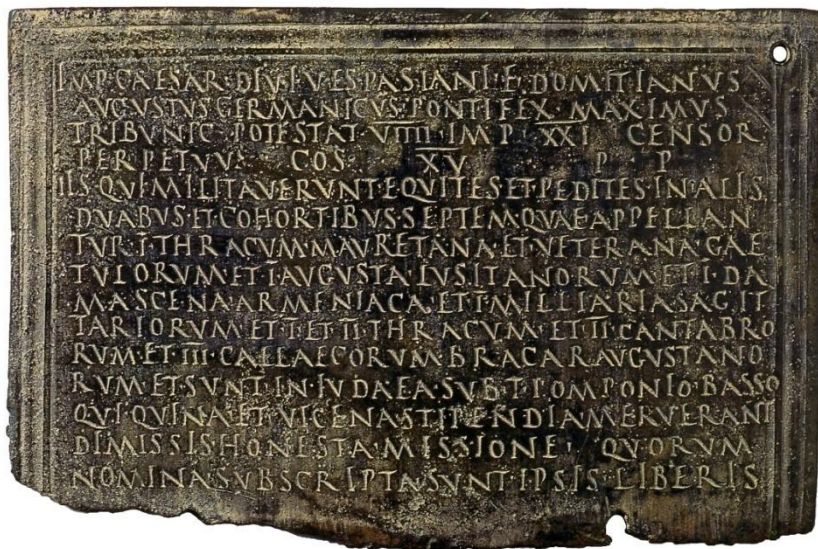 IMP·CAESAR·DIVI·VESPASIANI·F·DOMITIANVS
AVGVSTVS GERMANICVS·PONTIFEX·MAXIMVS
TRIBVNIC·POTESTAT·VIIII·IMP·XXI CENSOR
PERPETVVS COS· XV P· P·
IIS QVI MILITAVERVNT EQVITES ET PEDITES IN ALIS
DVABVS·ET COHORTIBVS SEPTEM·QVAE APPELLAN
TVR·I THRACVM·MAVRETANA·ET VETERANA·GAE
TVLORVM·ET I AVGVSTA LVSITANORVM·ET I·DA
MASCENA ARMENIACA·ET I MILLIARIA SAGIT
TARIORVM·ET I·ET II THRACVM·ET II CANTABRO
RVM·ET III CALLAECORVM BRACARAVGVSTANO
RVM ET SVNT IN IVDAEA·SVB T·POMPONIO·BASSO
QVI QVINA ET VICENA STIPENDIA MERVERANT
DIMISSIS HONESTA MISSIONE QVORVM
NOMINA SVBSCRIPTA SVNT·IPSIS·LIBERIS